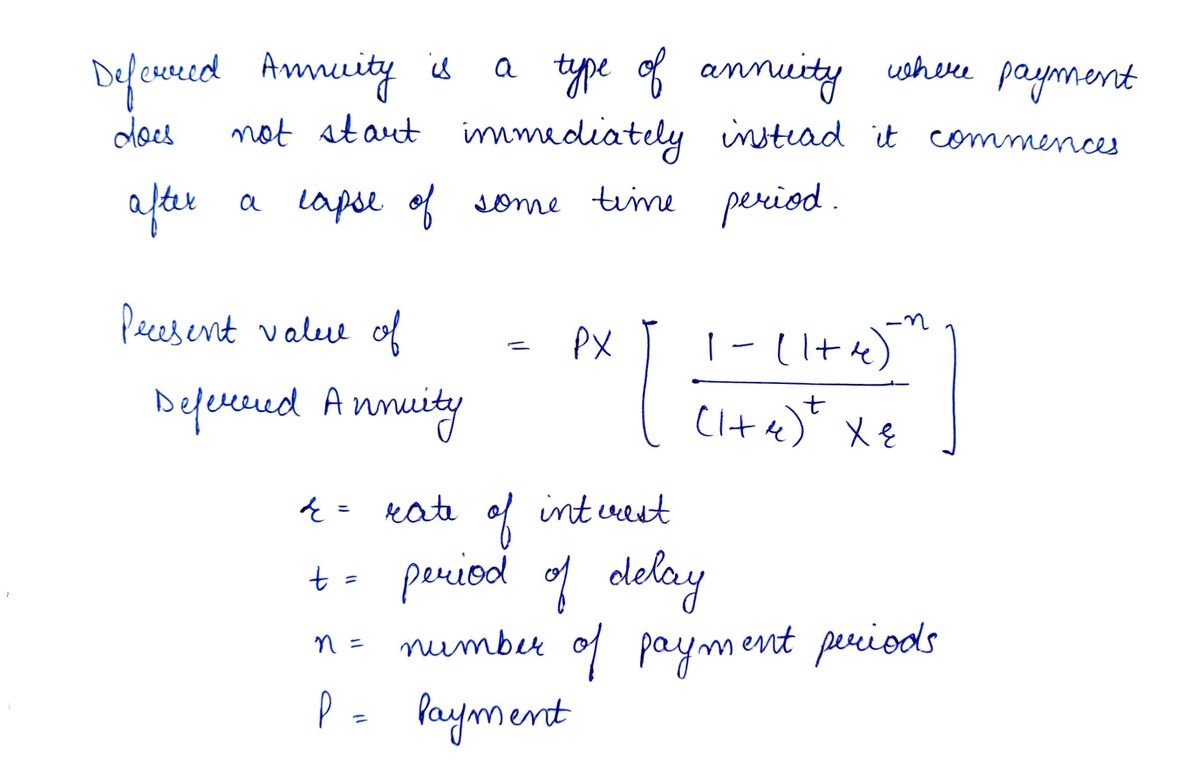 Deferred Annuity is a type of annuity where payment
does not start immediately instead it commences
after a lapse of some time period.
Present value of
Deferred Annuity = PX [ 1 - (1+r)^-n / (1+r)^t X r ]
r = rate of interest
t = period of delay
n = number of payment periods
P = Payment